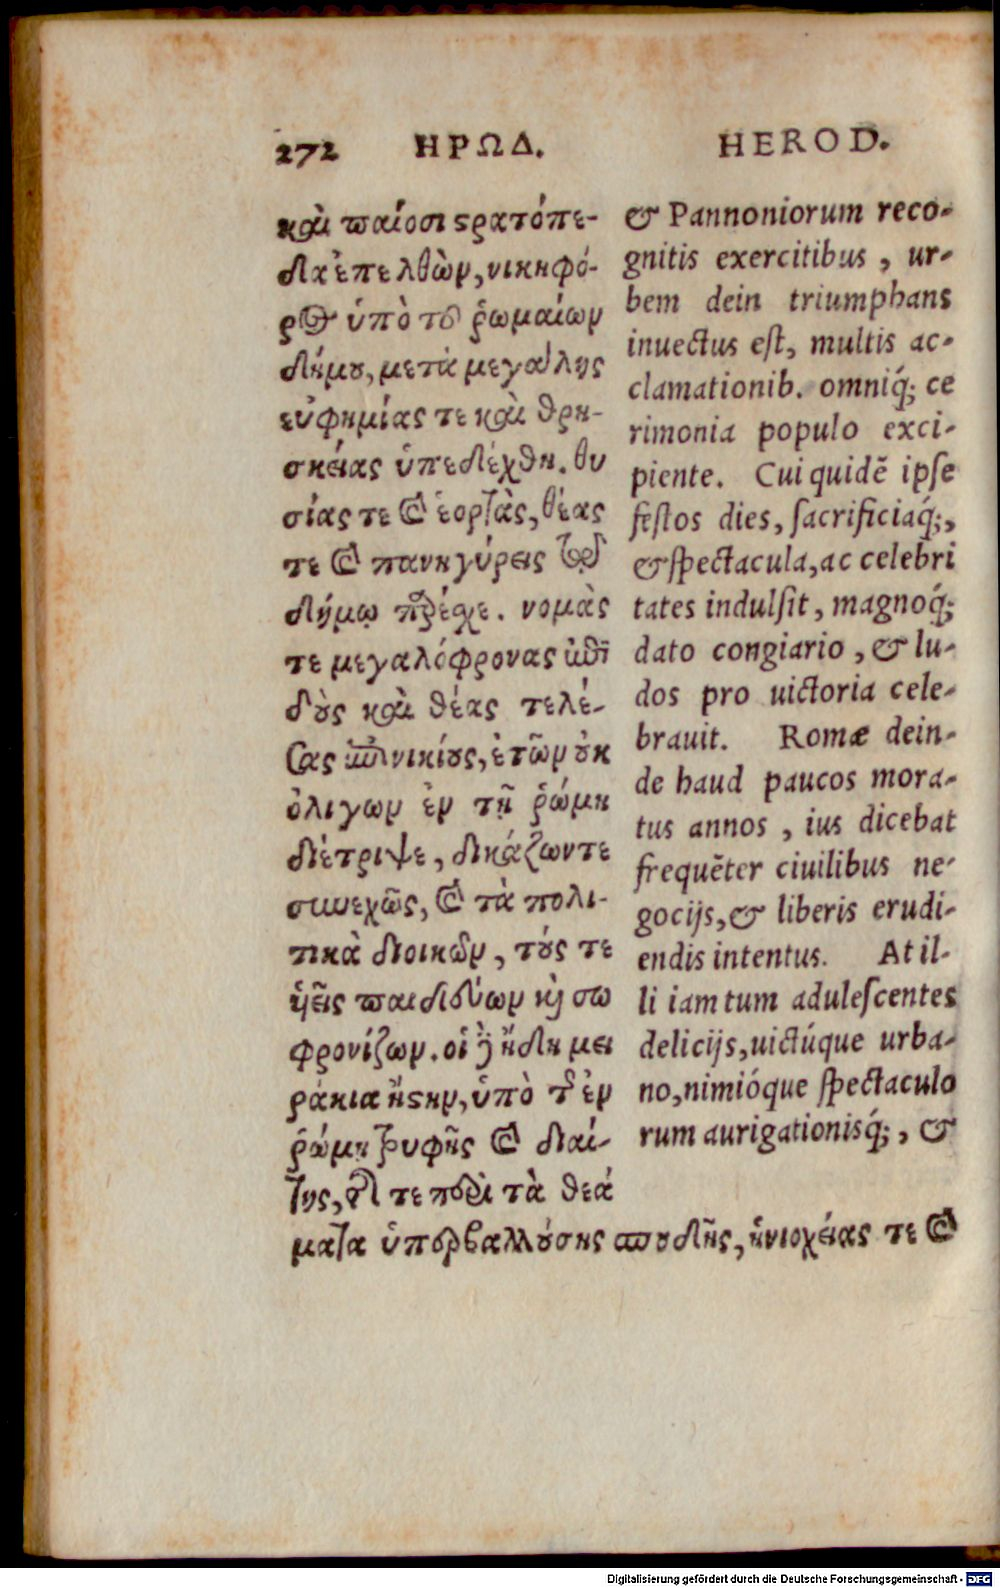 272 ΗΡΩΔ. HEROD.
καὶ παίοσι στρατόπε-
δα ἐπελθὼν, νικηφό-
ρος ὑπὸ τοῦ ῥωμαίων
δήμου, μετὰ μεγάλης
εὐφημίας τε καὶ θρη-
σκείας ὑπεδέχθη. θυ
σίας τε καὶ ἑορτὰς, θέας
τε καὶ πανηγύρεις τῷ
δήμῳ παρέσχε. νομὰς
τε μεγαλόφρονας ἐπιδι
δοὺς καὶ θέας τελέ-
σας ἐπινικίους, ἐτῶν οὐκ
ὀλιγων ἐν τῇ ῥώμη
διέτριψε, δικάζωντε
συνεχῶς, καὶ τὰ πολι-
τικὰ διοικῶν, τούς τε
ὑεῖς παιδεύων καὶ σω
φρονίζων. οἱ δὲ ἤδη μει
ράκια ἤστην, ὑπὸ τε τῆς ἐν
ῥώμῃ τρυφῆς καὶ διαί-
της, τῆς τε περὶ τὰ θεά
ματα ὑπερβαλλούσης σπουδῆς, ἡνιοχείας τε καὶ
& Pannoniorum reco-
gnitis exercitibus, ur-
bem dein triumphans
inuectus est, multis ac-
clamationib. omniq́; ce
rimonia populo exci-
piente. Cui quidẽ ipse
festos dies, sacrificiaq́;,
& spectacula, ac celebri
tates indulsit, magnoq́;
dato congiario, & lu-
dos pro uictoria cele-
brauit. Romæ dein-
de haud paucos mora-
tus annos, ius dicebat
frequẽter ciuilibus ne-
gocijs, & liberis erudi-
endis intentus. At il-
li iam tum adulescentes
delicijs, uictúque urba-
no, nimióque spectaculo
rum aurigationisq́;, &
Digitalisierung gefördert durch die Deutsche Forschungsgemeinschaft - DFG